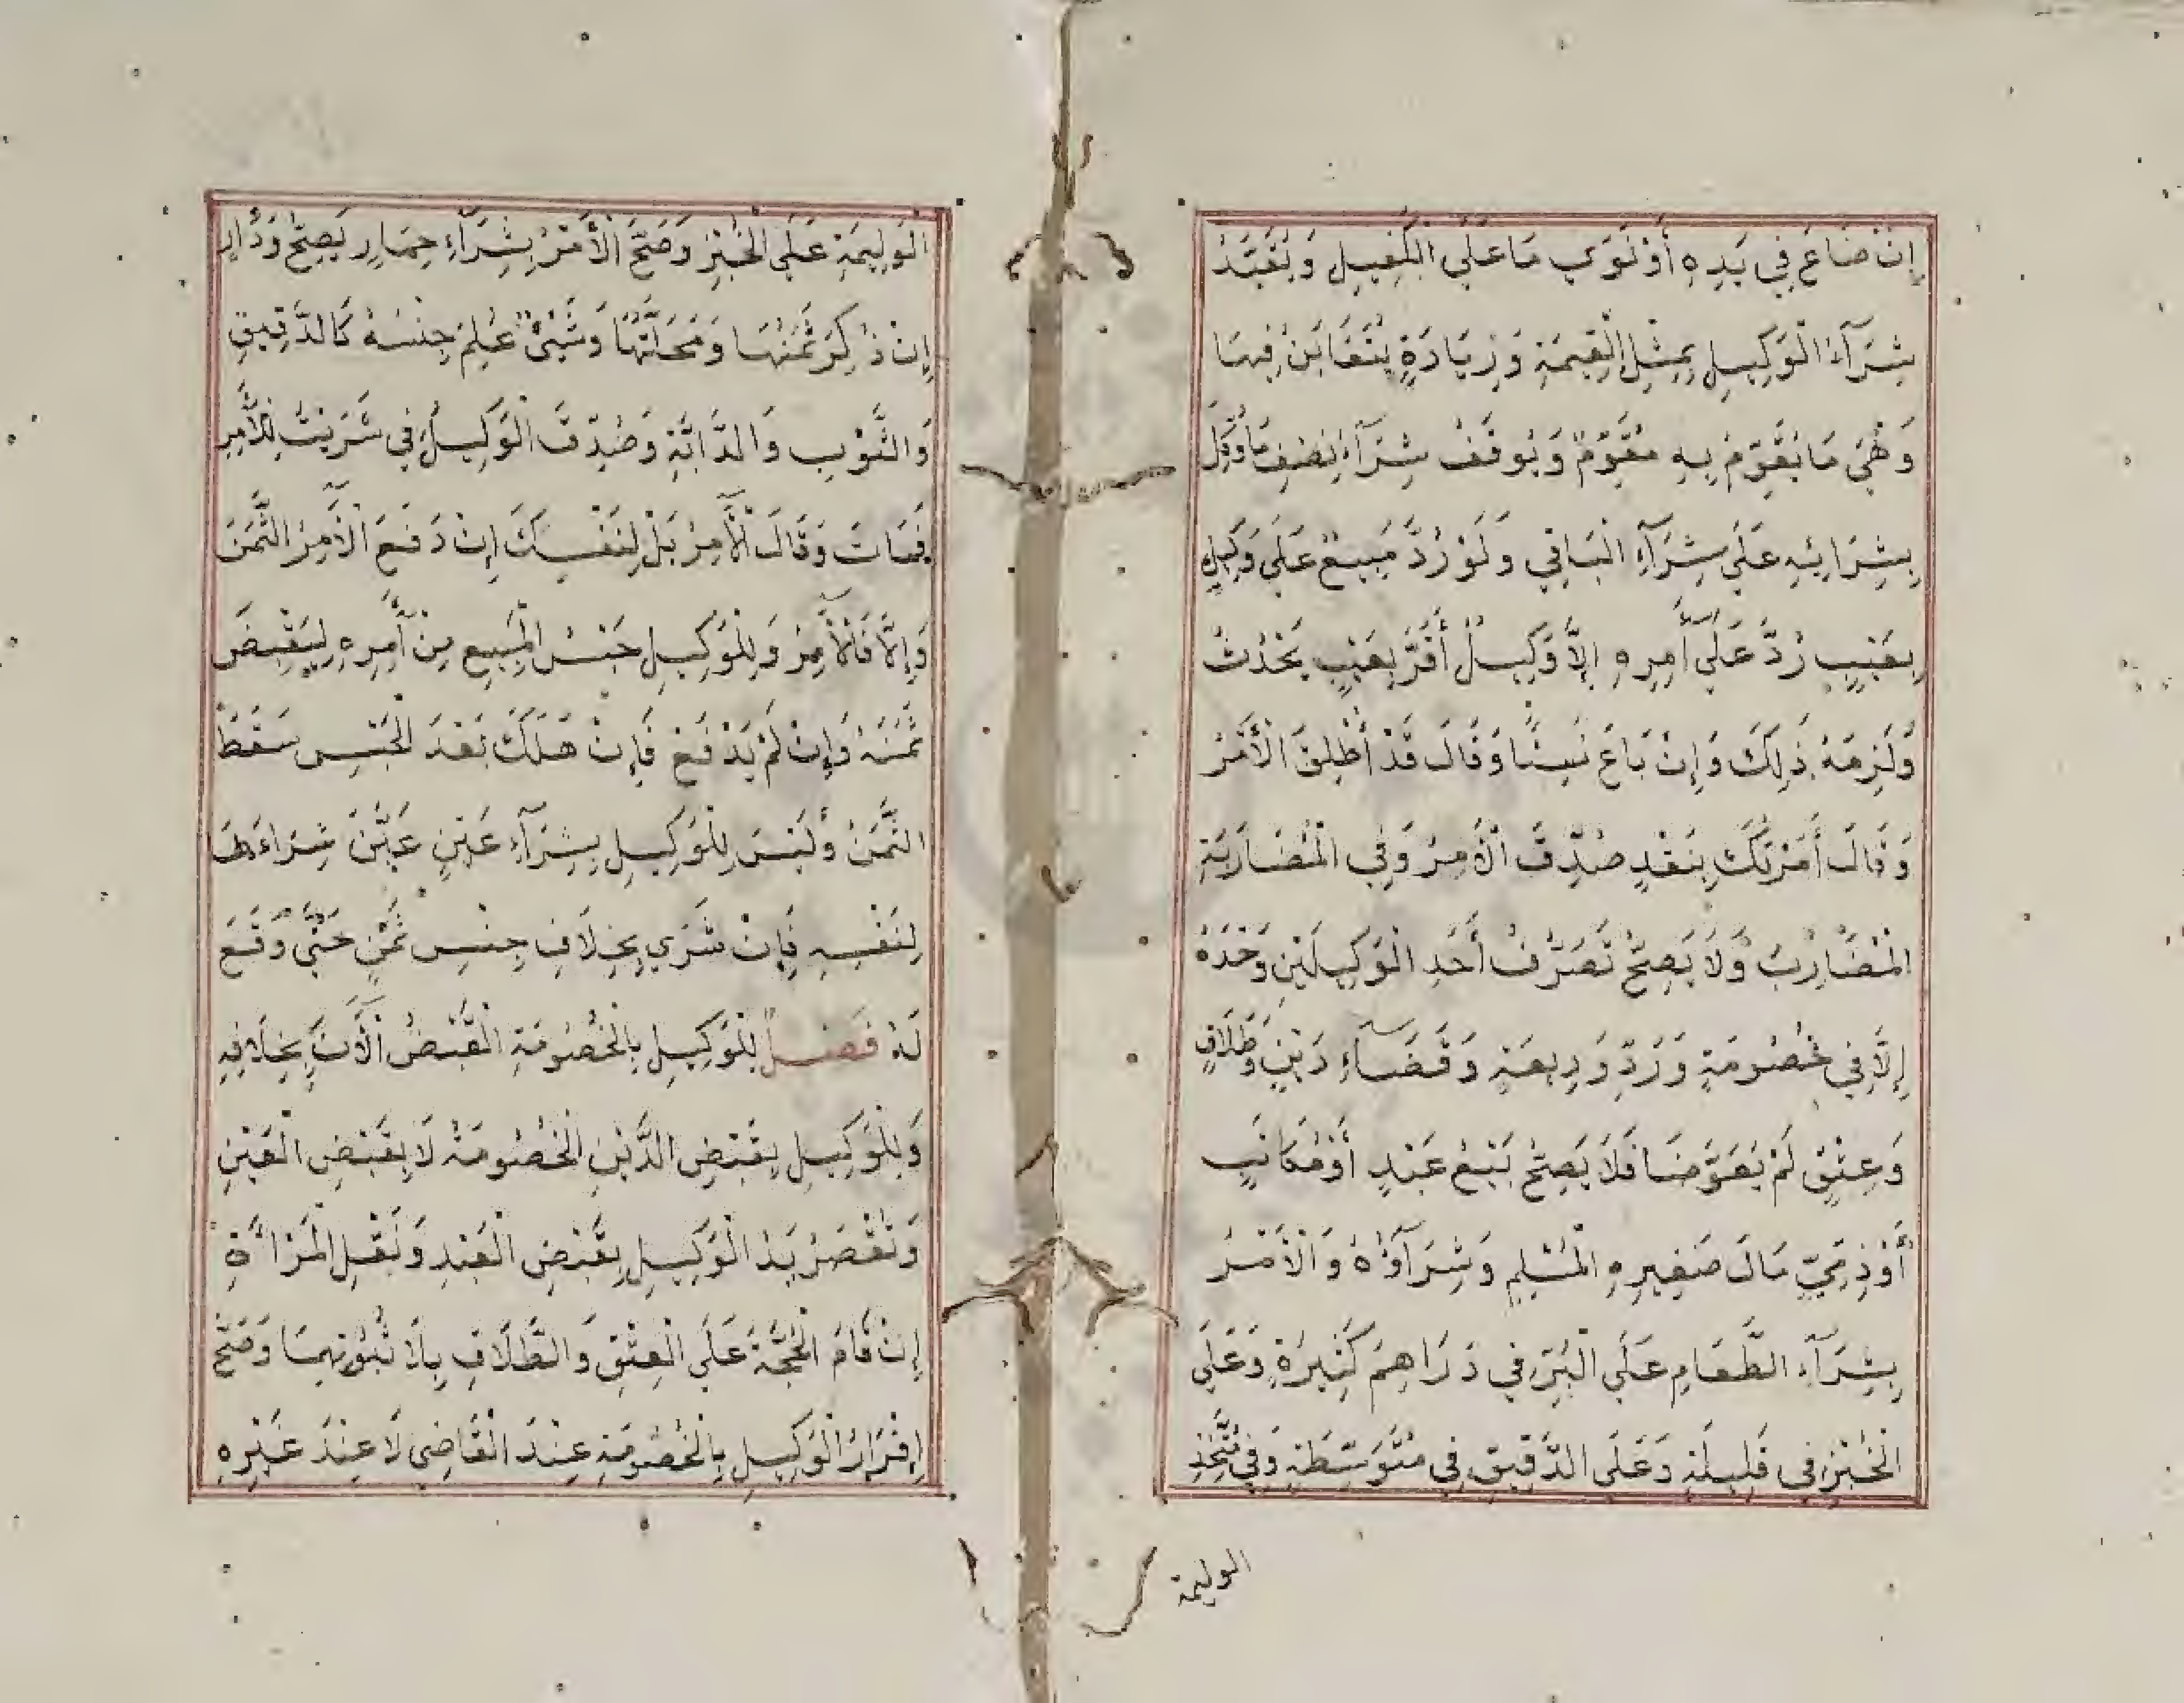 إِنْ ضَاعَ فِي يَدِهِ أَوْ تَوَي مَا عَلَي الْكَفِيلِ وَيُقَيَّدُ
شِرَآءُ الْوَكِيلِ بِمِثْلِ الْقِيمَةِ وَزِيَادَةٍ يُتَغَابَنُ فِيهَا
وَهْيَ مَا يُقَوِّمُ بِهِ مُقَوِّمٌ وَيُوقَفُ شِرَآءُ نِصْفِ مَا وُكِّلَ
بِشِرَائِهِ عَلَي شِرَآءِ الْبَاقِي وَلَوْ رُدَّ مَبِيعٌ عَلَي وَكِيلٍ
بِعَيْبٍ رُدَّ عَلَي آمِرِهِ إِلَّا وَكِيلٌ أَقَرَّ بِعَيْبٍ يَحْدُثُ
وَلَزِمَهُ ذَلِكَ وَإِنْ بَاعَ نَسِيئًا وَقَالَ قَدْ أَطْلَقَ الْأَمْرُ
وَقَالَ أَمَرْتُكَ بِنَقْدٍ صُدِّقَ الْآمِرُ وَفِي الْمُضَارَبَةِ
الْمُضَارِبُ وَلَا يَصِحُّ تَصَرُّفُ أَحَدِ الْوَكِيلَيْنِ وَحْدَهُ
إِلَّا فِي خُصُومَةٍ وَرَدِّ وَدِيعَةٍ وَقَضَاءِ دَيْنٍ وَطَلَاقٍ
وَعِتْقٍ لَمْ يُعَوَّضَا فَلَا يَصِحُّ بَيْعُ عَبْدٍ أَوْ مُكَاتَبٍ
أَوْ ذِمِّيٍّ مَالَ صَغِيرِهِ الْمُسْلِمِ وَشِرَآؤُهُ وَالْأَمْرُ
بِشِرَآءِ الطَّعَامِ عَلَي الْبُرِّ فِي دَرَاهِمَ كَثِيرَةٍ وَعَلَي
الْخُبْزِ فِي قَلِيلَةٍ وَعَلَي الدَّقِيقِ فِي مُتَوَسِّطَةٍ وَفِي مُتَّخِذِ
الوليمة
الْوَلِيمَةِ عَلَي الْخُبْزِ وَصَحَّ الْأَمْرُ بِشِرَآءِ حِمَارٍ يَصِحُّ وَدَارٍ
إِنْ ذُكِرَ ثَمَنُهَا وَمَحَلَّتُهَا وَشَيْئٌ عُلِمَ جِنْسُهُ كَالدَّقِيقِ
وَالثَّوْبِ وَالدَّابَّةِ وَصُدِّقَ الْوَكِيلُ فِي شَرَيْتُ لِلْآمِرِ
فَمَاتَ وَقَالَ الْآمِرُ بَلْ لِنَفْسِكَ إِنْ دَفَعَ الْآمِرُ الثَّمَنَ
وَإِلَّا فَالْآمِرُ وَلِلْوَكِيلِ حَبْسُ الْمَبِيعِ مِنْ آمِرِهِ لِيَقْبِضَ
ثَمَنَهُ وَإِنْ لَمْ يَدْفَعْ فَإِنْ هَلَكَ بَعْدَ الْحَبْسِ سَقَطَ
الثَّمَنُ وَلَيْسَ لِلْوَكِيلِ بِشِرَآءِ عَيْنٍ عَيَّنَ شِرَاءَهَا
لِنَفْسِهِ فَإِنْ شَرَي بِخِلَافِ جِنْسِ ثَمَنٍ حَتَّي وَقَعَ
لَهُ فَصْلٌ لِلْوَكِيلِ بِالْخُصُومَةِ الْقَبْضُ الْآنَ بِخِلَافِهِ
وَلِلْوَكِيلِ بِقَبْضِ الدَّيْنِ الْخُصُومَةُ لَا بِقَبْضِ الْعَيْنِ
وَتُقْصَرُ يَدُ الْوَكِيلِ بِقَبْضِ الْعَبْدِ وَنَقْلِ الْمَرْأَةِ
إِنْ قَامَ الْحُجَّةُ عَلَي الْعِتْقِ وَالطَّلَاقِ بِلَا ثُبُوتِهِمَا وَصَحَّ
إِقْرَارُ الْوَكِيلِ بِالْخُصُومَةِ عِنْدَ الْقَاضِي لَا عِنْدَ غَيْرِهِ